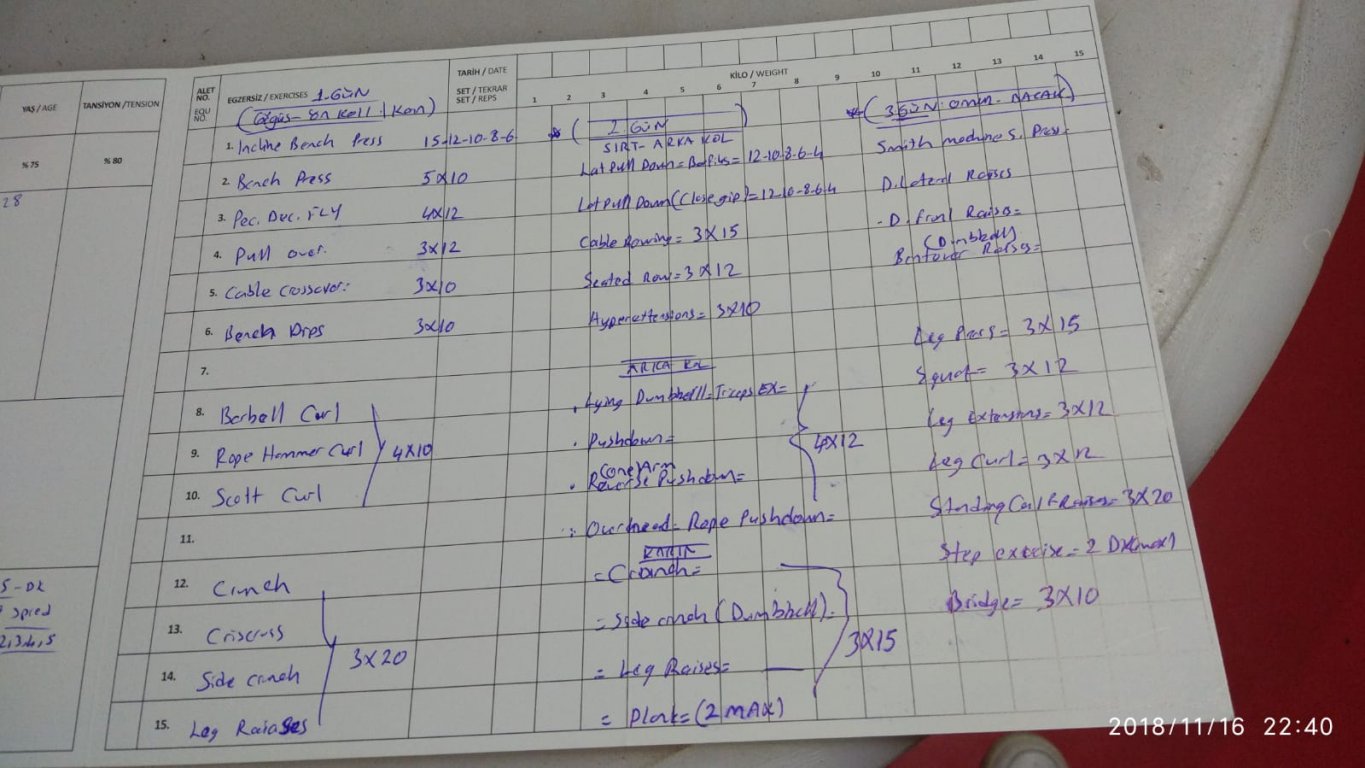 YAŞ / AGE
TANSİYON /TENSION
% 75
% 80
28
5-DK
ALET NO.
EQU NO.
EGZERSİZ / EXERCISES 1.GÜN
TARİH / DATE
SET / TEKRAR
SET / REPS
KİLO / WEIGHT
1 2 3 4 5 6 7 8 9 10 11 12 13 14 15
1. Incline Bench Press 15-12-10-8-6
2. Bench Press 5X10
3. Pec. Dec. FLY 4X12
4. Pull over. 3X12
5. Cable Crossover: 3X10
6. Bench Dips 3X10
7.
8. Berbell Curl
9. Rope Hammer Curl
10. Scott Curl
4X10
11.
12. Crınch
13. Criscross
14. Side crınch
15. Leg Raiases
3X20
2 GÜN
SIRT- ARKA KOL
Lat Pull Down= = 12-10-8-6-4
Lat Pull Down (Close gip)= 12-10-8-6-4
Cable Rowing= 3X15
Seated Row= 3X12
Hyperextensions= 3X10
ARKA KOL
. Lying Dumbbell Triceps EX=
. Pushdown=
(One Arm
. Reverse Pushdown=
Overhead= Rope Pushdown=
4X12
KARIN
= Crınch=
= Side crınch (Dumbbell)=
= Leg Raises=
= Plank= (2 MAX)
3X15
(3GÜN OMUZ- BACAK)
Smith machine S. Press.
D. Lateral Raises
- D. front Raise=
(Dumbbell)
Bentover Raise=
Leg Press= 3X15
Squat= 3X12
Leg extensions= 3X12
Leg Curl= 3X12
Standing Calf Raises= 3X20
Step exercise= 2 DK(max)
Bridge= 3X10
2018/11/16 22:40